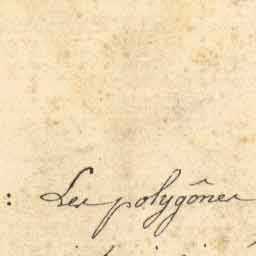 : Les polygônes